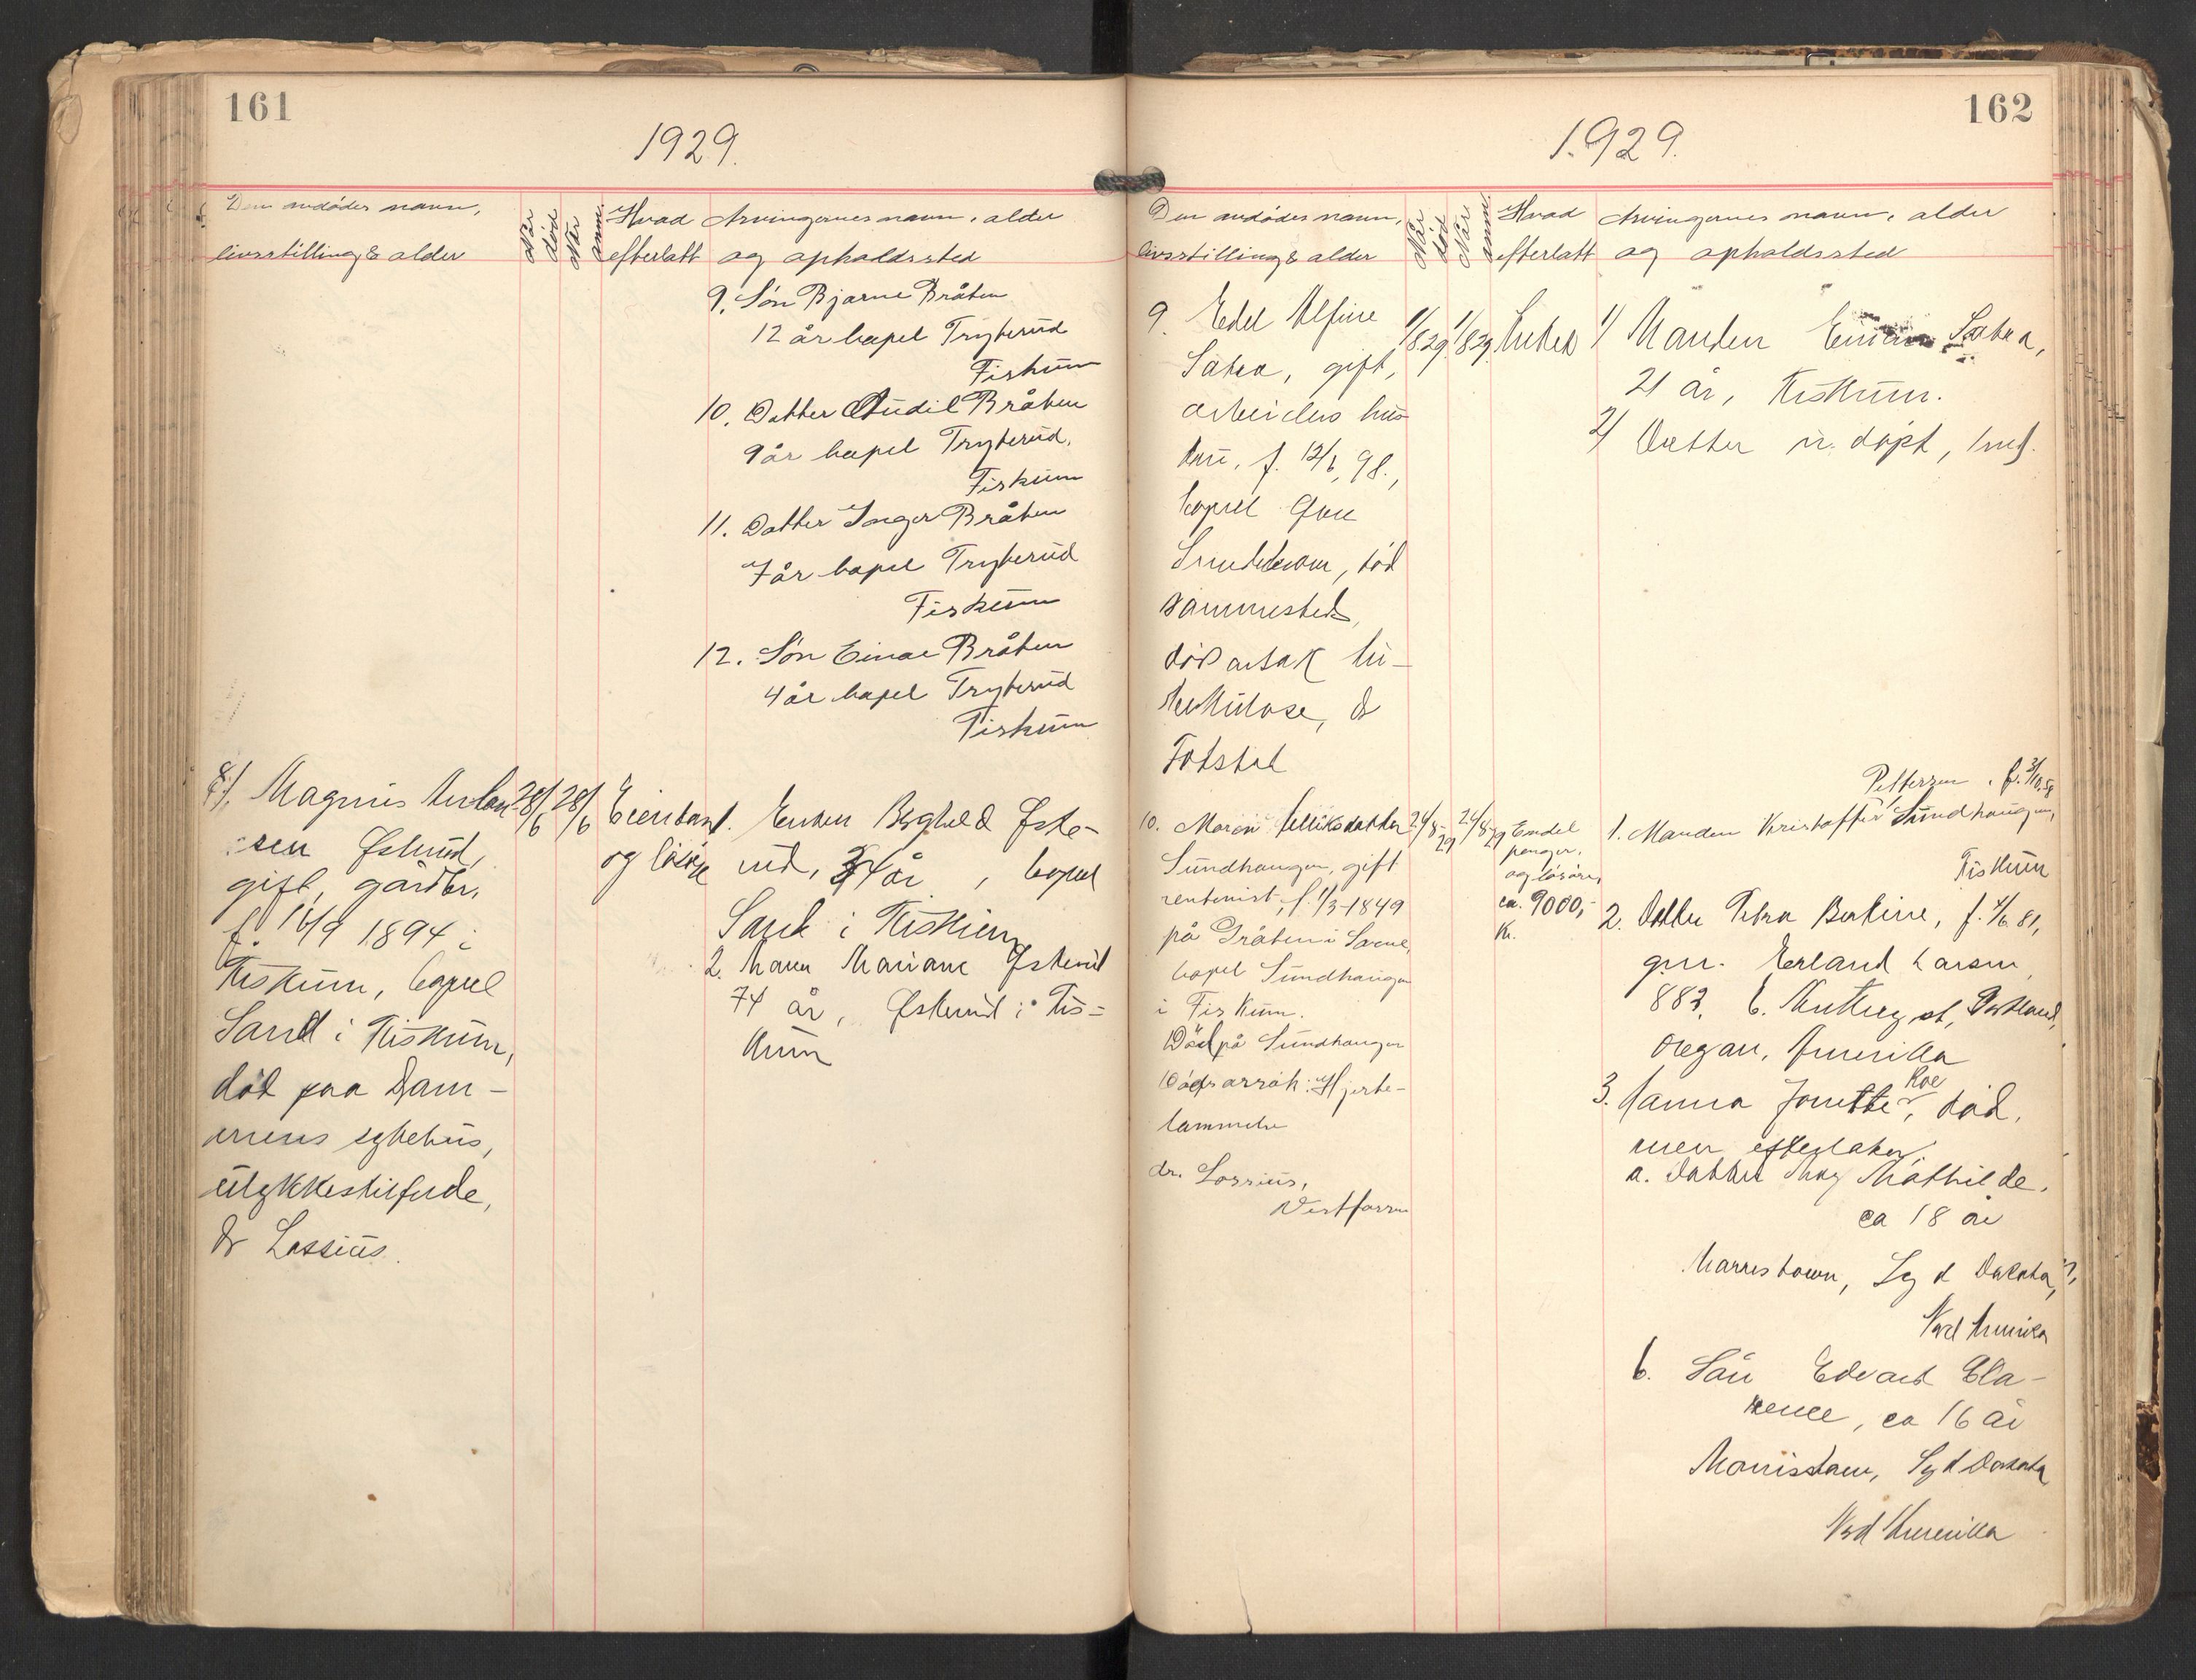 161
1929.
Den avdødes navn,
livsstilling & alder
Når
død
Når
anm.
Hvad
efterlatt
Arvingernes navn, alder
og opholdssted
9. Søn Bjarne Bråten
12 år bopel Tryterud
Fiskum
10. Datter Audil Bråten
9 år bopel Tryterud,
Fiskum
11. Datter Inger Bråten
7 år bopel Tryterud
Fiskum
12. Søn Einar Bråten
4 år bopel Tryterud
Fiskum
8/. Magnus
sen Østerud,
gift, gårdbr.
f. 16/9 1894 i
Fiskum, bopel
Sand i Fiskum,
død paa Dram-
mens sykehus,
ulykkestilfelde,
Dr Lossius.
28/6
28/6
Eiendom
og løsøre
1. Enken Berghild Øste-
rud, 34 år, bopel
Sand i Fiskum
2. Mann Mariane Østerud
74 år, Østerud i Fis-
kum
162
1929.
Den avdødes navn,
livsstilling & alder
Når
død
Når
anm.
Hvad
efterlatt
Arvingernes navn, alder
og opholdssted
9. Edel Alfine
Satra, gift,
arbeiders hus-
tru, f. 12/6 98.,
bopel
død
sammesteds,
dødsarsak tu-
berkulose, dr
Fotstad
1/8 29
1/8 29
Intet
1/ Manden Satra,
21 år, Fiskum.
2/ Datter u. døpt, 1 md.
10. Maren datter
Sundhaugen, gift
rentenist, f. 1/3-1849
på Bråten i Sarve,
bopel Sundhaugen
i Fiskum.
Død på Sundhaugen
Dødsarsak: Hjerte-
lammelse
dr. Lossius,
Vestfossen
24/8-29
24/8-29
Endel
penger,
og løsøre,
ca. 9000,-
Kr.
Petterzen, f. 3/10. 59
1. Manden Kristoffer Sundhaugen,
Fiskum
2. Datter Petra Bertine, f. 4/6. 81,
gm. Erland Larsen,
882, E. st, Portland,
Oregan, Amerika
3. Hanna Jonette Roe, død,
men efterlater:
a. Datter May Mathilde,
ca 18 år
Marristown, Syd Dakota,
Nord Amerika
b. Sön Edvard Cla-
rence, ca 16 år
Morristown, Syd Dakota
Nord Amerika